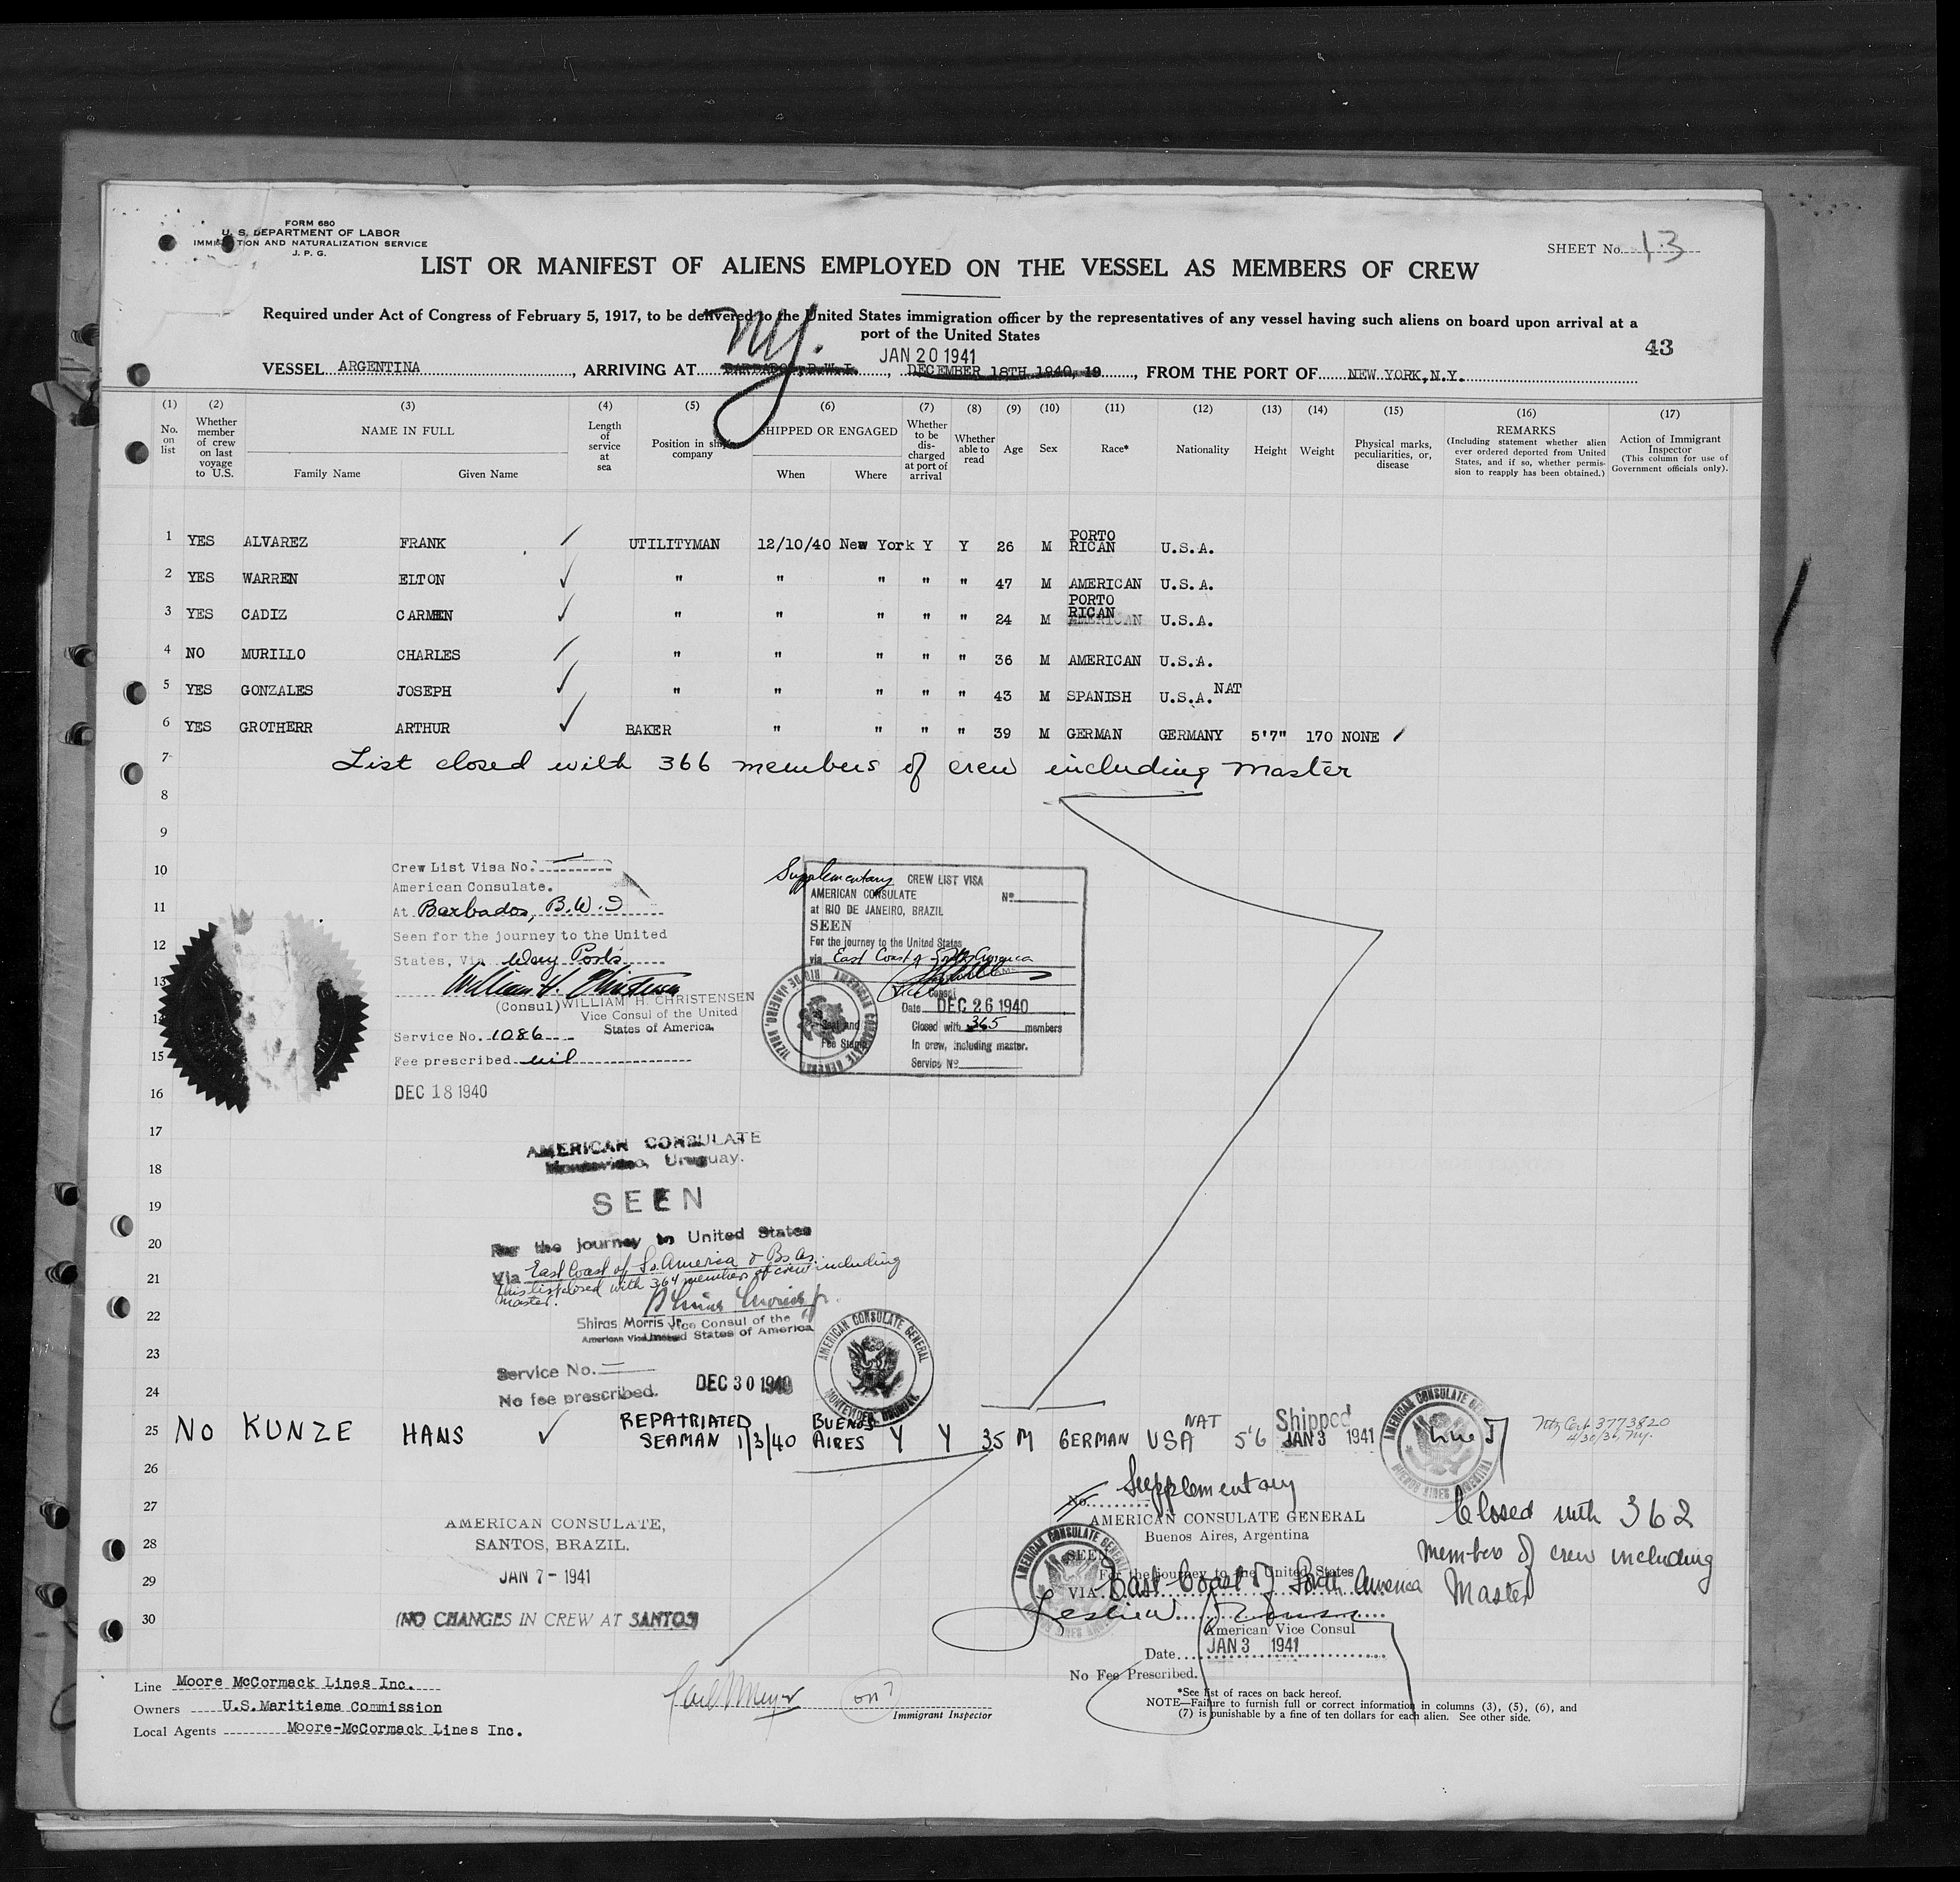 FORM 680
U. S. DEPARTMENT OF LABOR
IMMIGRATION AND NATURALIZATION SERVICE
J. P. G.
SHEET No. 13
LIST OR MANIFEST OF ALIENS EMPLOYED ON THE VESSEL AS MEMBERS OF CREW
Required under Act of Congress of February 5, 1917, to be delivered to the United States immigration officer by the representatives of any vessel having such aliens on board upon arrival at a
port of the United States
43
NY.
JAN 20 1941
VESSEL ARGENTINA, ARRIVING AT BARBADOS, B.W.I., DECEMBER 18TH 1940, 19, FROM THE PORT OF NEW YORK, N.Y.
(1) (2) (3) (4) (5) (6) (7) (8) (9) (10) (11) (12) (13) (14) (15) (16) (17)
No. on list
Whether member of crew on last voyage to U.S.
NAME IN FULL
Family Name Given Name
Length of service at sea
Position in ship's company
SHIPPED OR ENGAGED
When Where
Whether to be discharged at port of arrival
Whether able to read
Age
Sex
Race*
Nationality
Height
Weight
Physical marks, peculiarities, or, disease
REMARKS
(Including statement whether alien ever ordered deported from United States, and if so, whether permission to reapply has been obtained.)
Action of Immigrant Inspector
(This column for use of Government officials only).
1 YES ALVAREZ FRANK UTILITYMAN 12/10/40 New York Y Y 26 M PORTO RICAN U.S.A.
2 YES WARREN ELTON " " " " " 47 M AMERICAN U.S.A.
3 YES CADIZ CARMEN " " " " " 24 M PORTO RICAN AMERICAN U.S.A.
4 NO MURILLO CHARLES " " " " " 36 M AMERICAN U.S.A.
5 YES GONZALES JOSEPH " " " " " 43 M SPANISH U.S.A. NAT
6 YES GROTHERR ARTHUR BAKER " " " " 39 M GERMAN GERMANY 5'7" 170 NONE
7 List closed with 366 members of crew including master
8
9
10
11
12
13
14
15
16
17
18
19
20
21
22
23
24
Crew List Visa No.
American Consulate.
At Barbados, B.W.I
Seen for the journey to the United
States, Via Way Ports
William H. Christensen
(Consul) WILLIAM H. CHRISTENSEN
Vice Consul of the United
States of America.
Service No. 1086
Fee prescribed nil
DEC 18 1940
Supplementary CREW LIST VISA
AMERICAN CONSULATE No
at RIO DE JANEIRO, BRAZIL
SEEN
For the journey to the United States
via East Coast of South America
Consul
Date DEC 26 1940
Seal and Fee Stamp
Closed with 365 members
in crew, including master.
Service No
AMERICAN CONSULATE GENERAL RIO DE JANEIRO, BRAZIL
AMERICAN CONSULATE
Montevideo, Uruguay.
SEEN
For the journey to United States
Via East Coast of So. America & Bs As.
This list closed with 364 members of crew including
master.
Shiras Morris Jr.
Shiras Morris Jr. Vice Consul of the
United States of America
Service No.
No fee prescribed.
DEC 30 1940
AMERICAN CONSULATE GENERAL MONTEVIDEO, URUGUAY.
25 NO KUNZE HANS REPATRIATED SEAMAN 1/3/40 BUENOS AIRES Y Y 35 M GERMAN USA NAT 5'6 Shipped JAN 3 1941
AMERICAN CONSULATE GENERAL BUENOS AIRES ARGENTINA
Ntz Cert. 3773820
26
27
28
29
30
AMERICAN CONSULATE,
SANTOS, BRAZIL.
JAN 7 - 1941
(NO CHANGES IN CREW AT SANTOS)
Supplementary
No.
AMERICAN CONSULATE GENERAL
Buenos Aires, Argentina
SEEN
For the journey to the United States
VIA East Coast of South America
Leslie W.
American Vice Consul
Date JAN 3 1941
No Fee Prescribed.
Closed with 362
members of crew including
Master
Line Moore McCormack Lines Inc.
Owners U.S.Maritieme Commission
Local Agents Moore-McCormack Lines Inc.
Immigrant Inspector
*See list of races on back hereof.
NOTE—Failure to furnish full or correct information in columns (3), (5), (6), and
(7) is punishable by a fine of ten dollars for each alien. See other side.